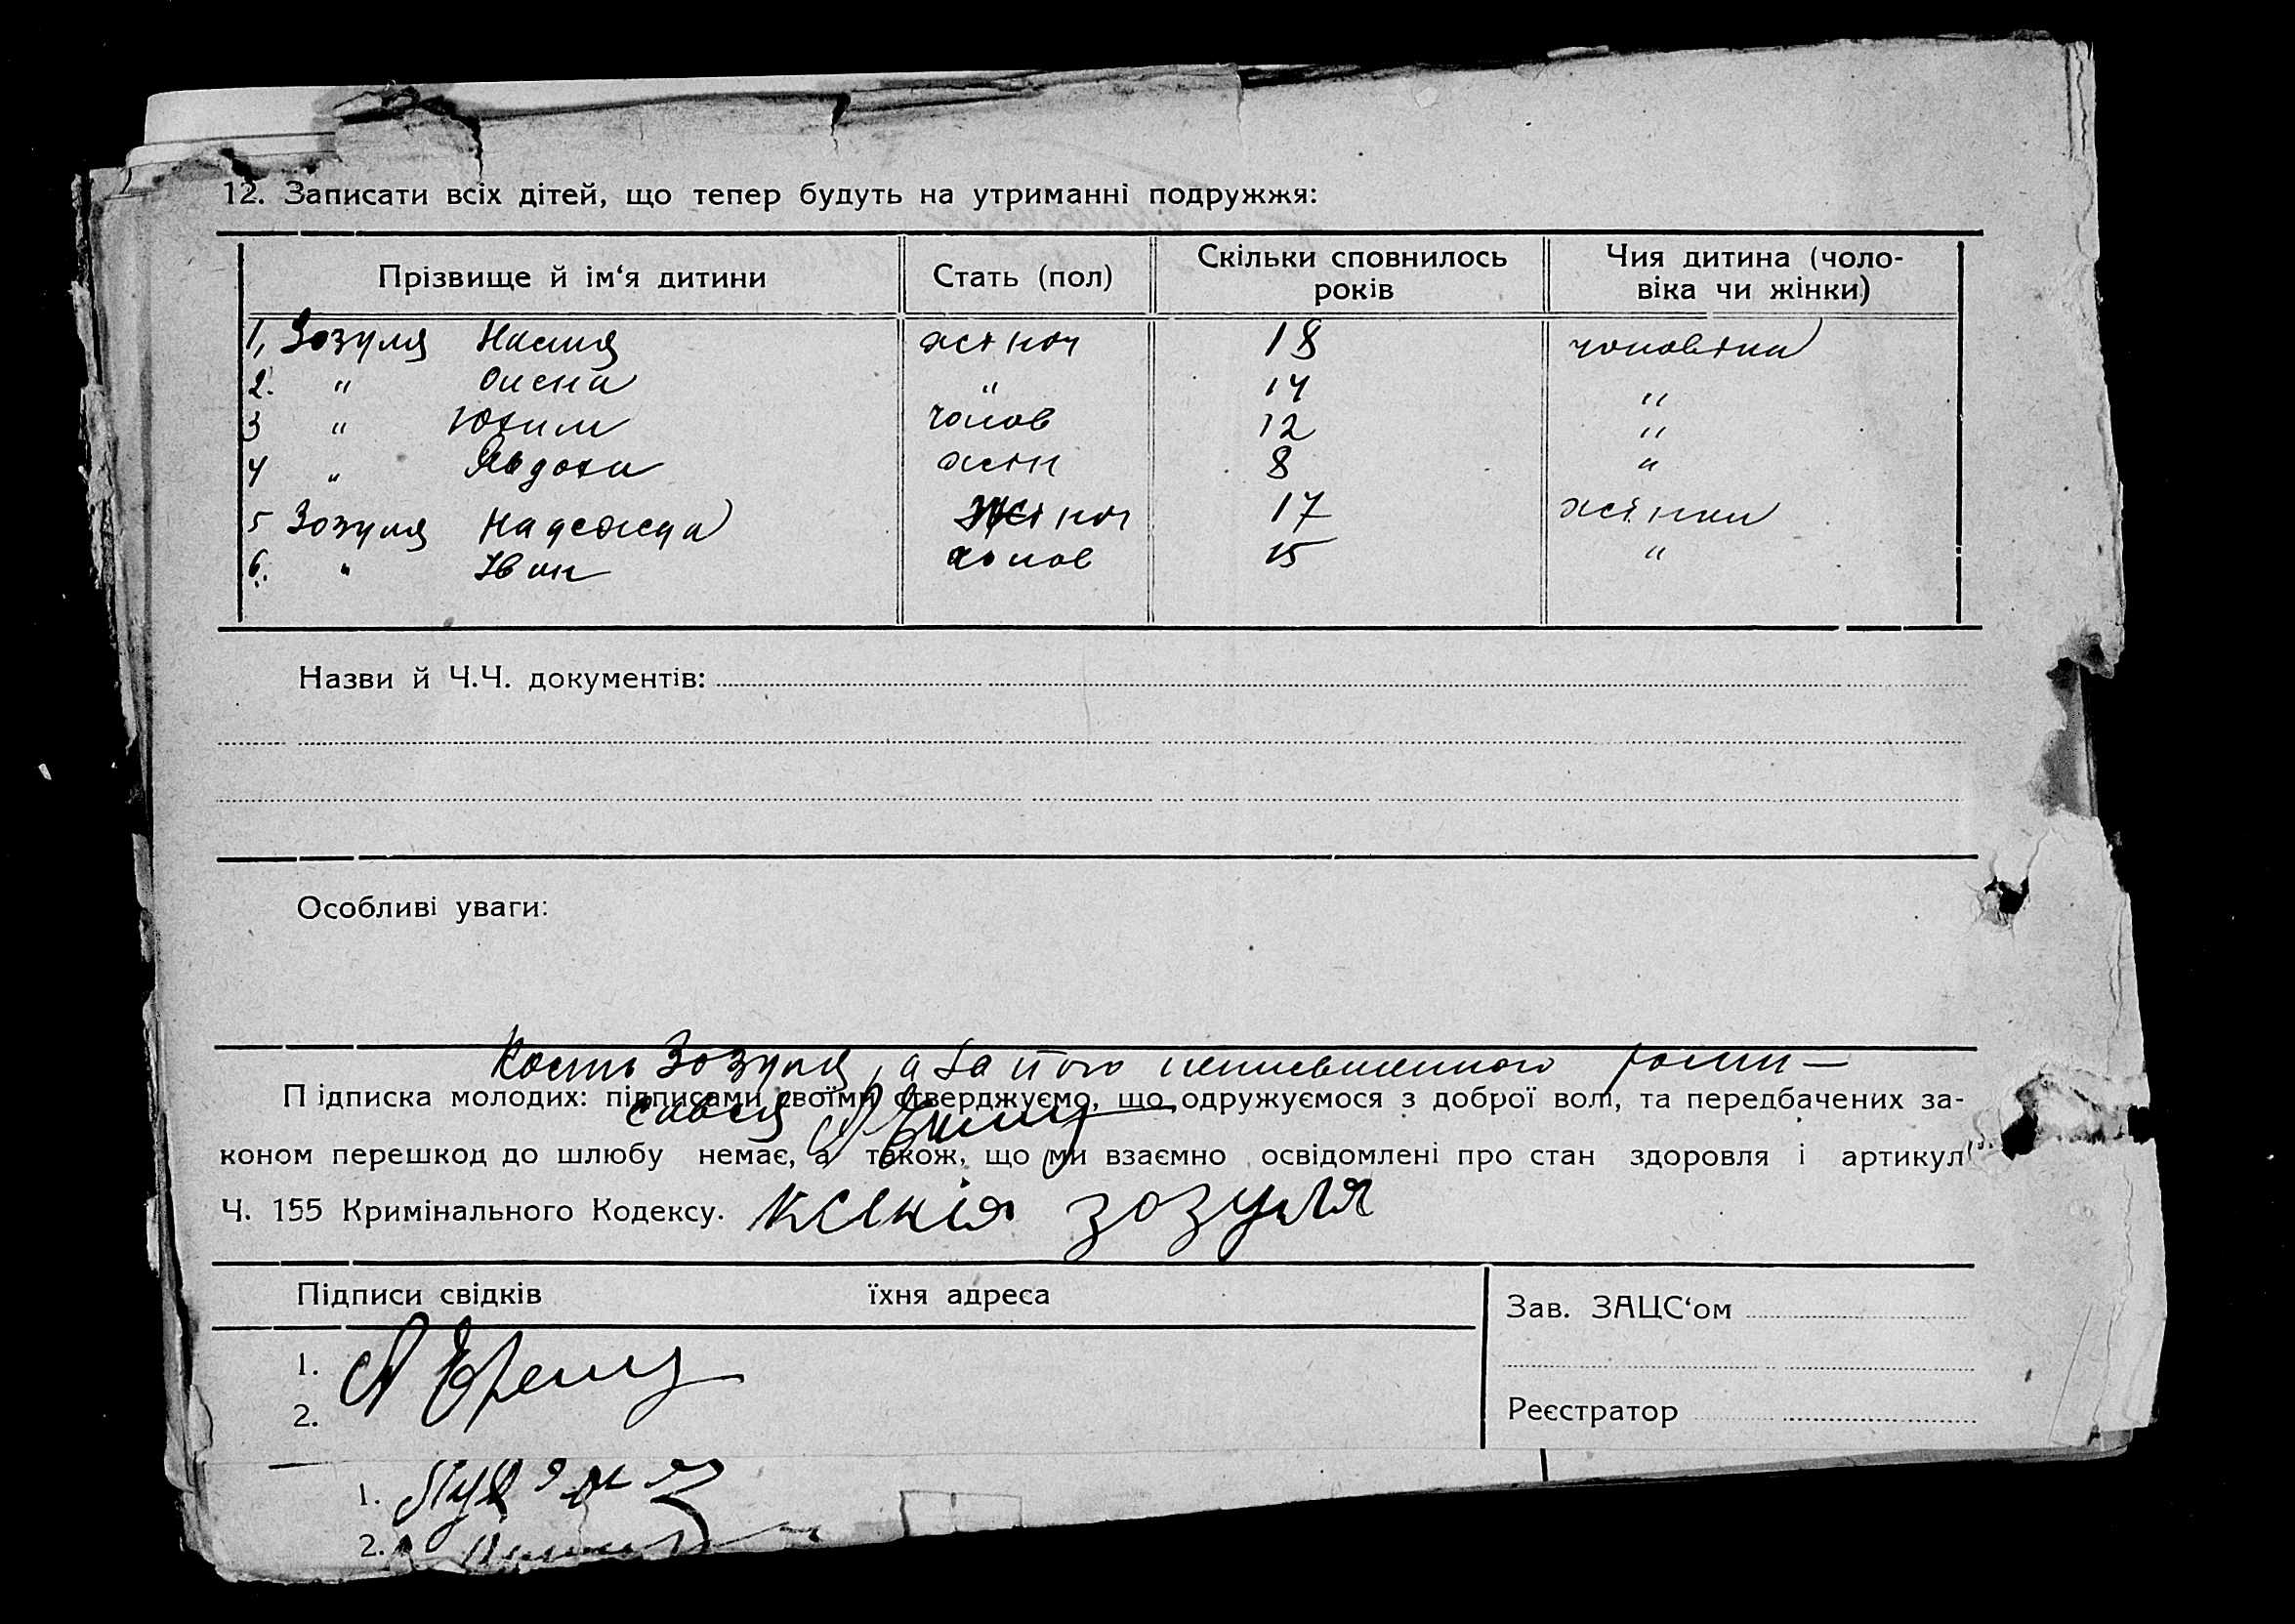 12. Записати всіх дітей, що тепер будуть на утриманні подружжя:
Прізвище й ім‘я дитини Стать (пол) Скільки сповнилось років Чия дитина (чоловіка чи жінки)
1, Зозуля Настя жіноч 18 чоловіка
2. " Олена " 14 "
3 " Юхим чолов 12 "
4 " Явдоха жіно 8 "
5 Зозуля Надежда жіноч 17 жінки
6. " Іван чолов 15 "
Назви й Ч.Ч. документів:
Особливі уваги:
Кость Зозуля, а за його неписьменного розпи-
сався
Підписка молодих: підписами своїми стверджуємо, що одружуємося з доброї волі, та передбачених за-
коном перешкод до шлюбу немає, а також, що ми взаємно освідомлені про стан здоровля і артикул
Ч. 155 Кримінального Кодексу. Ксенія Зозуля
Підписи свідків їхня адреса
Зав. ЗАЦС‘ом
1.
2.
Реєстратор
1.
2.